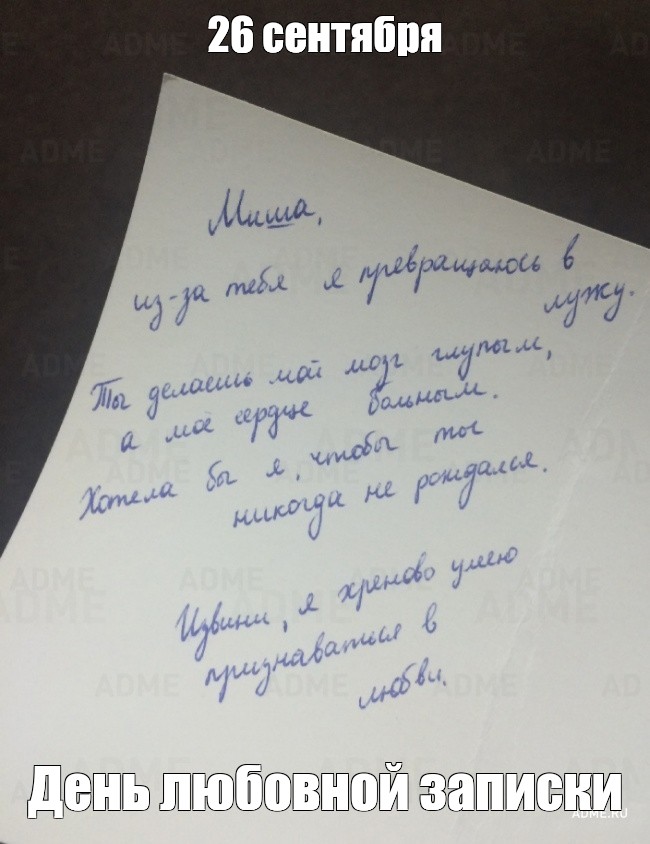 26 сентября
Миша,
из-за тебя я превращаюсь в
лужу.
Ты делаешь мой мозг глупым,
а моё сердце больным.
Хотела бы я, чтобы ты
никогда не рождался.
Извини, я хреново умею
признаваться в
любви.
День любовной записки
ADME.RU